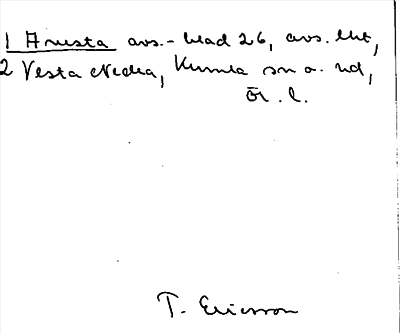 1 Årusta avs.-blad 26, avs. lht,
2 Vesta Nedra, Kumla sn o. hd,
Ör. l.
T. Ericsson